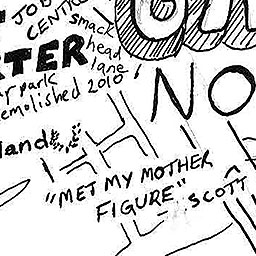 JOB
CENTRE
smack
head
lane
2010
TER
car park
demolished
NO
land
"MET MY MOTHER
FIGURE"
SCOTT